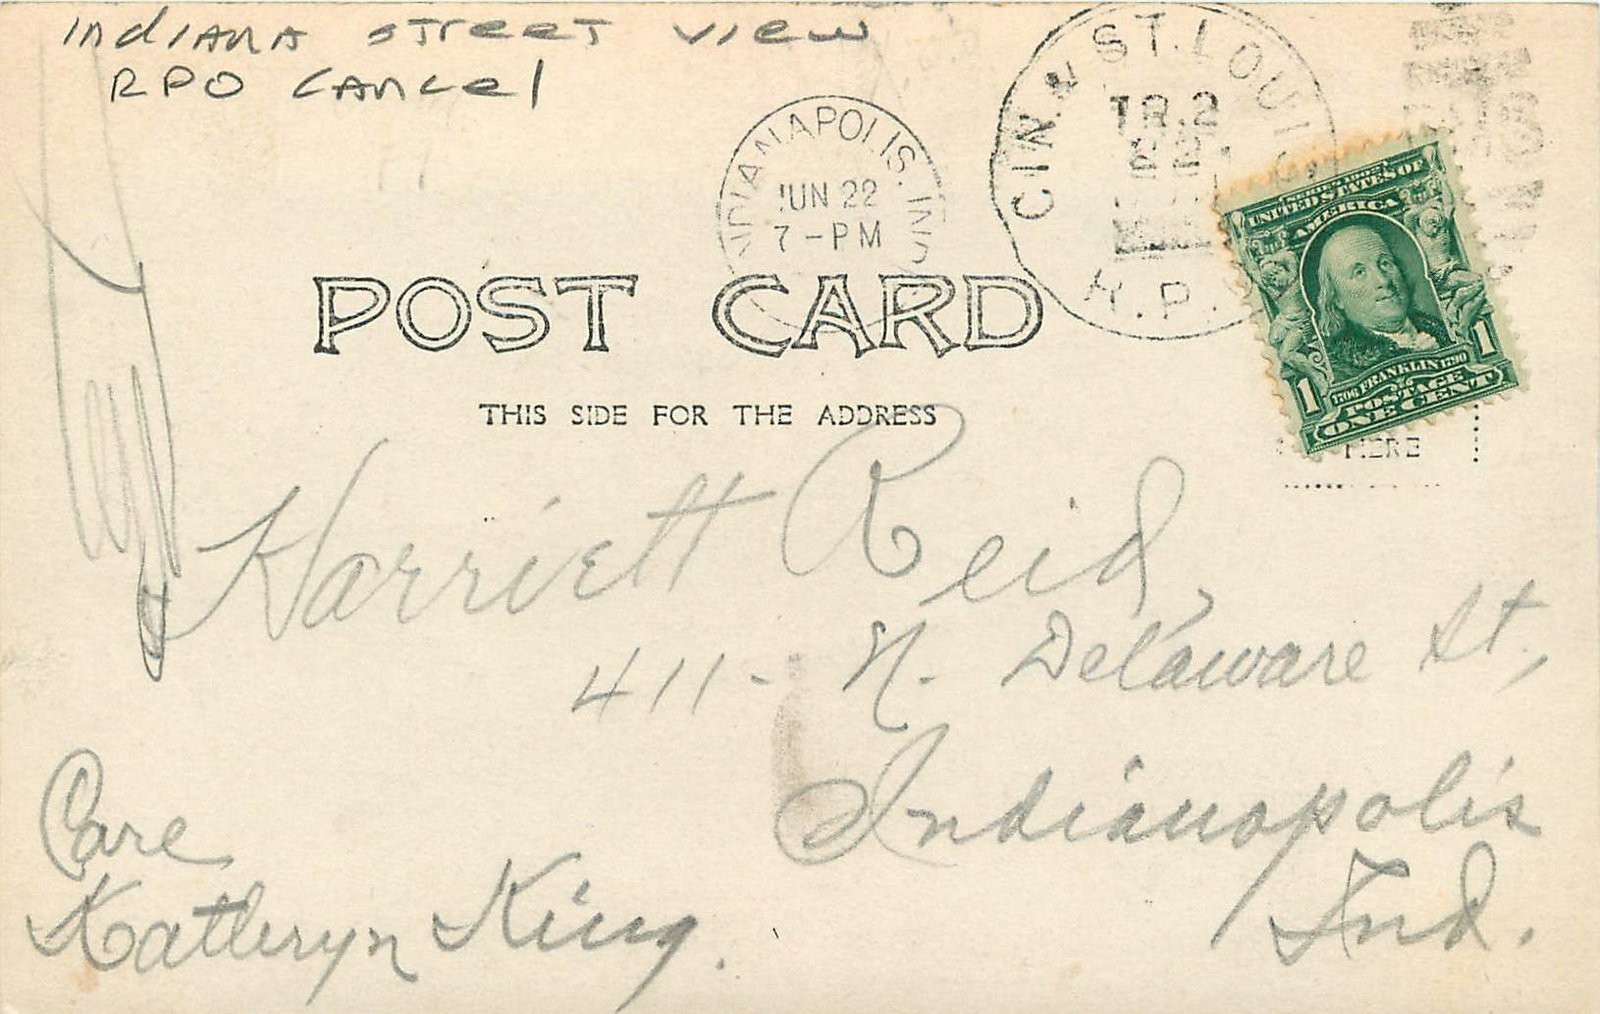 INDIANA STREET VIEW
RPO CANCEL
INDIANAPOLIS. IND.
JUN 22
7 - PM
CIN. & ST. LOUIS
TR. 2
22
R.P.
SERIES 1902
UNITED STATES OF
AMERICA
1706 FRANKLIN 1790
POSTAGE
1 ONE CENT 1
POST CARD
THIS SIDE FOR THE ADDRESS
HERE
Harriett Reid,
411 - N. Delaware St.,
Indianapolis
Ind.
Care
Kathryn King.